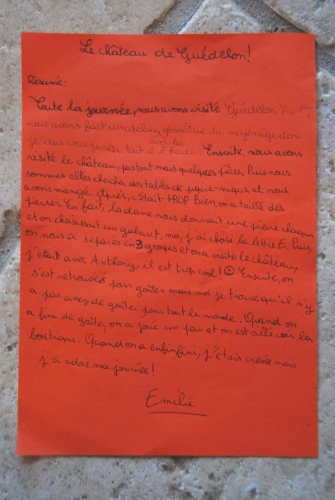 Le château de Guédelon!
Résumé:
Toute la journée, nous avons visité Guédelon. En 1er,
nous avons fait un atelier, géométrie du
je vous
Ensuite, nous avons
visité le château, pas tout mais quelques pièces. Puis nous
sommes allés chercher des tables de pique-nique et nous
avons mangé. Après, c'était TROP Bien, on a taillé des
pierres. En fait, la dame nous donnait une pierre chacun
et on choisissait un gabarit, moi, j'ai choisi la lettre E. Puis,
on nous a séparés en 3 groupes et on a visité le château,
j'étais avec Anthony, il est trop cool! Ensuite, on
s'est retrouvés pour goûter mais moi je trouve qu'il n'y
a pas assez de goûter pour tout le monde. Quand on
a fini de goûter, on a joué un peu et on est allé voir la
boutique. Quand on a enfin fini, j'étais crevée mais
j'ai adoré ma journée!
Emilie